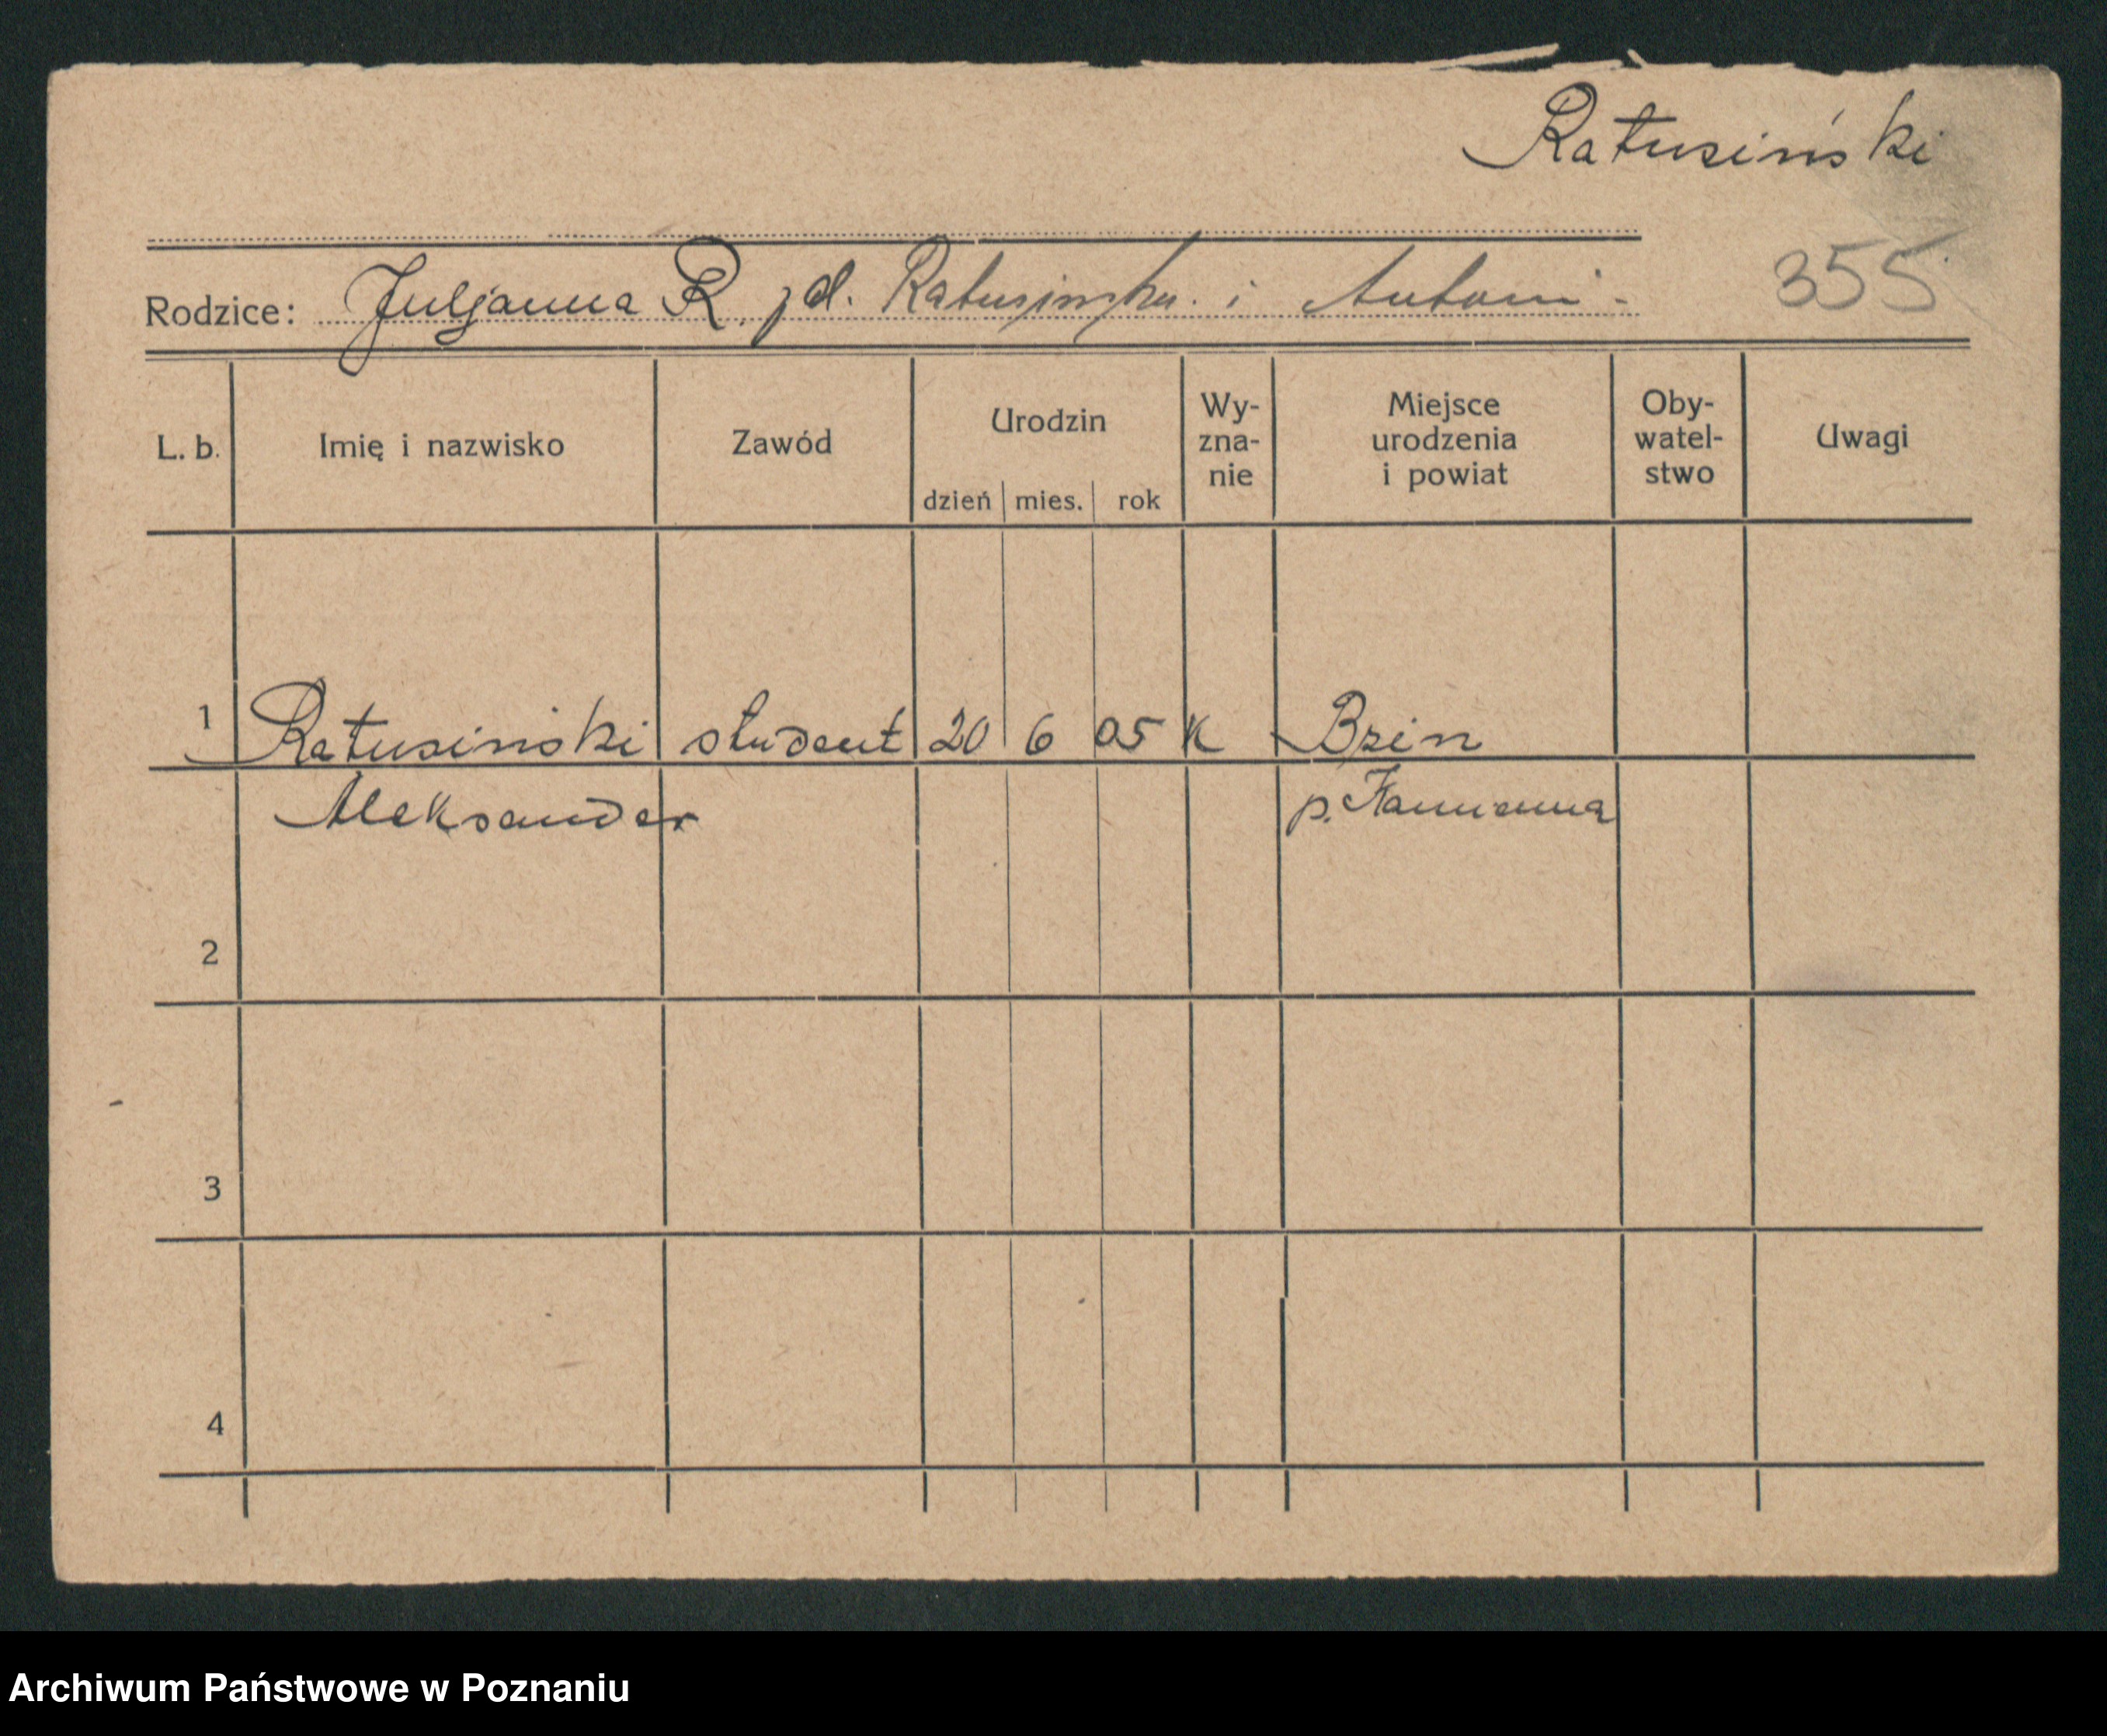 Ratusiński
Rodzice: Juljanna R. zd. Ratusińska. i Antoni -
355
L. b. Imię i nazwisko Zawód Urodzin dzień mies. rok Wy-zna-nie Miejsce urodzenia i powiat Oby-watel-stwo Uwagi
1 Ratusiński student 20 6 05 K Bzin
Aleksander p. Kamienna
2
3
4
Archiwum Państwowe w Poznaniu